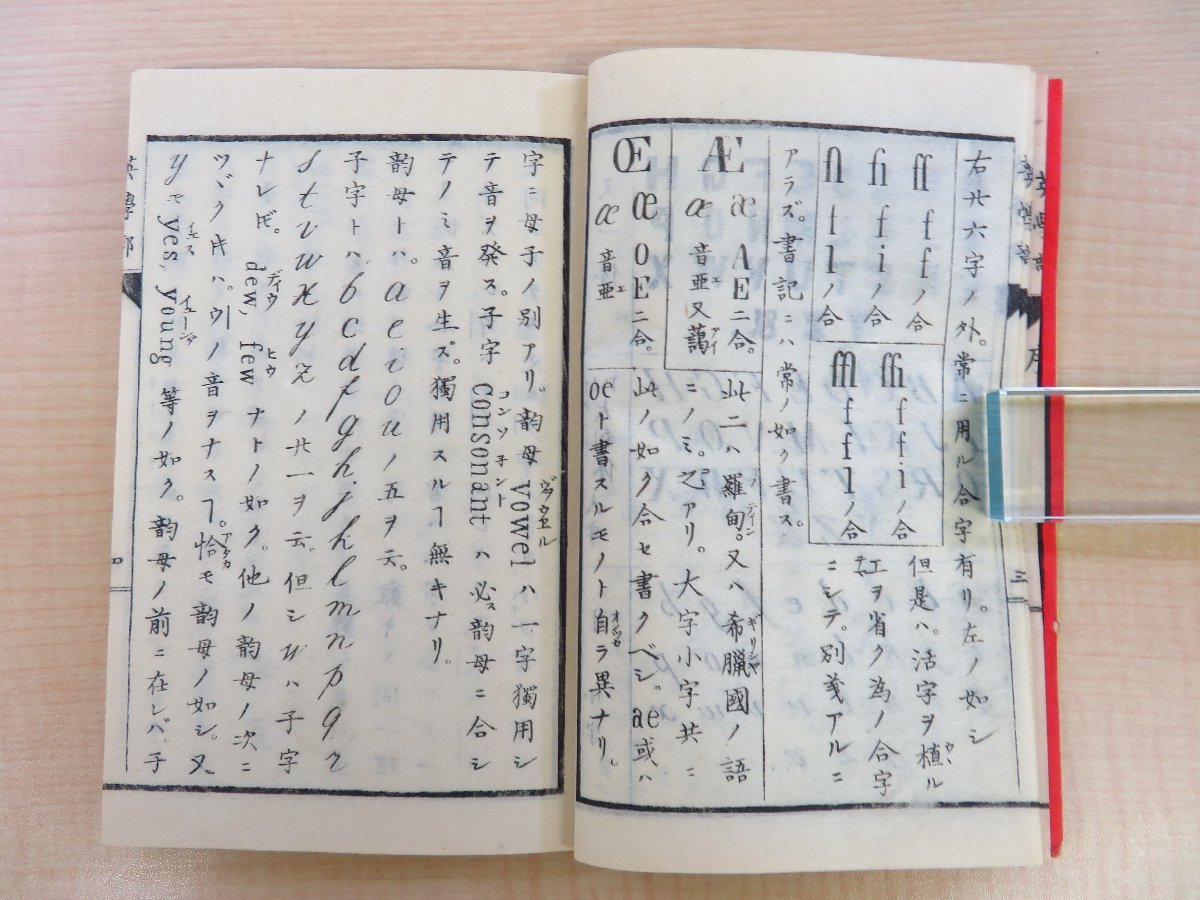 右廿六字ノ外。常ニ用ル合字有リ。左ノ如シ
ff f f ノ合
fi f i ノ合
fl f l ノ合
ffi f f i ノ合
ffl f f l ノ合
但是ハ。活字ヲ植ル
エヲ省ク為ノ合字
ニシテ。別義アルニ
アラズ。書記ニハ常ノ如ク書ス。
Æ æ AE二合。
æ 音亜エ又藹アイ
此二ハ羅甸。又ハ希臘國ノ語
ニノミ。之アリ。大字小字共ニ
Œ œ OE二合。
œ 音亜エ
此ノ如ク合セ書クベシ。ae或ハ
oeト書スルモノト自ラ異ナリ。
字ニ母子ノ別アリ。韵母vowelハ一字獨用シ
テ音ヲ發ス。子字consonantハ必ス韵母ニ合シ
テノミ音ヲ生ズ。獨用スルヿ無キナリ。
韵母トハ。a e i o u ノ五ヲ云。
子字トハ。b c d f g h j k l m n p q r
s t v w x y z ノ廿一ヲ云。但シwハ子字
ナレ𪜈。dew, few ナトノ如ク。他ノ韵母ノ次ニ
ツヾクキハ。ウノ音ヲナスヿ。恰モ韵母ノ如シ。又
yモ yes, young 等ノ如ク。韵母ノ前ニ在レバ。子